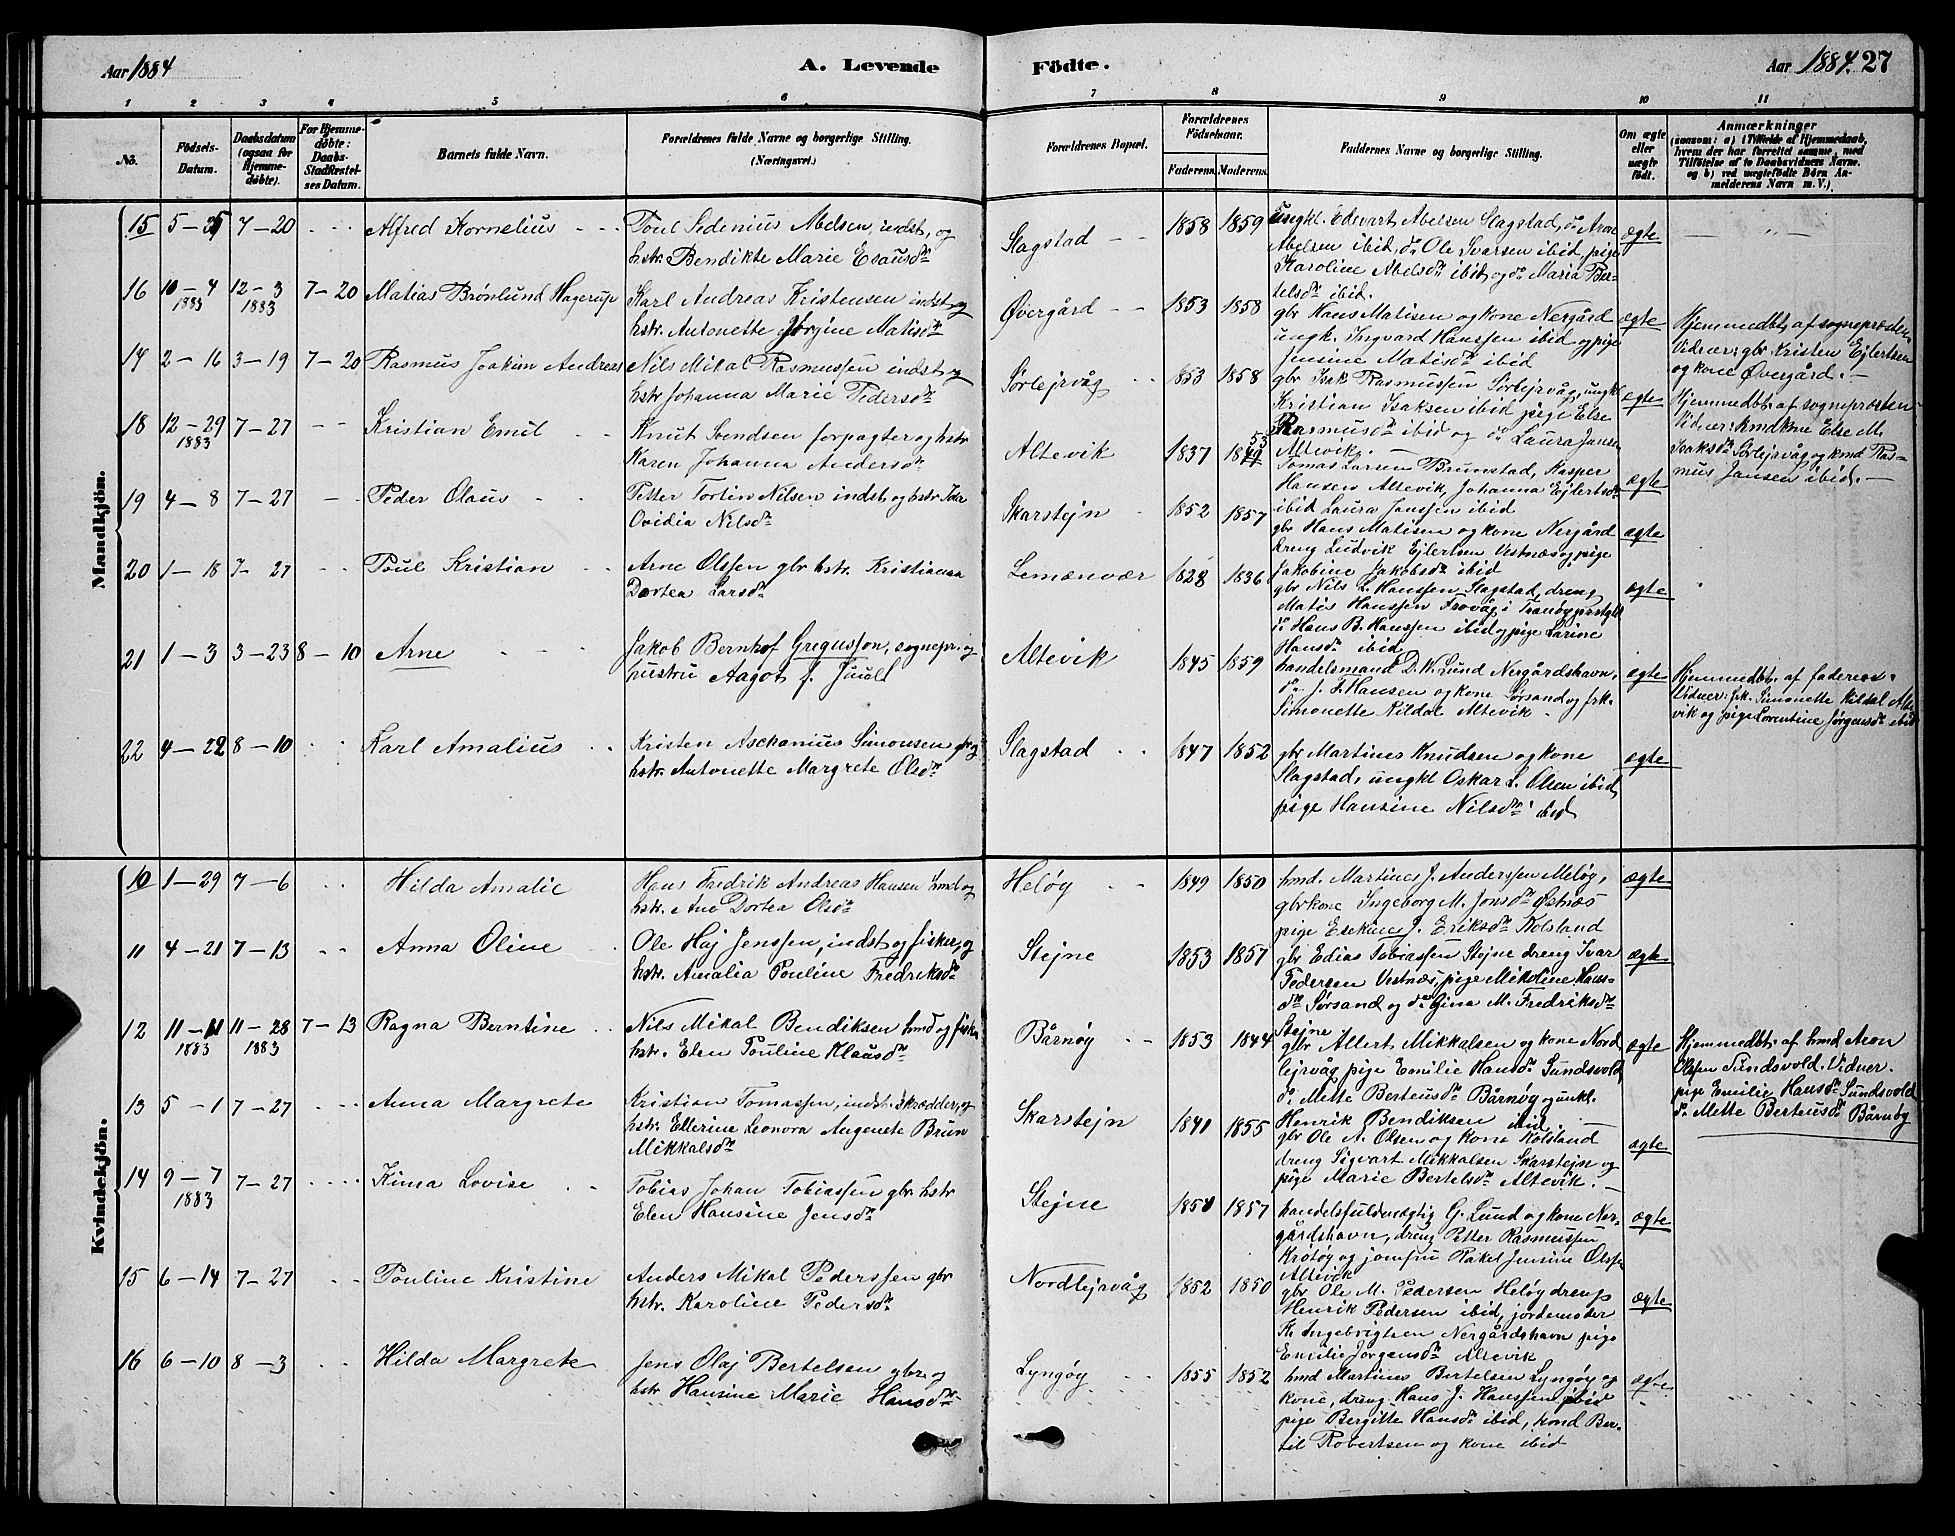 Aar 1884
A. Levende
Födte.
Aar 1884. 27
1 2 3 4 5 6 7 8 9 10 11
No.
Födsels-Datum.
Daabsdatum (ogsaa for Hjemme-døbte).
For Hjemme-döbte: Daabs-Stadfæstel-ses Datum.
Barnets fulde Navn.
Forældrenes fulde Navne og borgerlige Stilling. (Næringsvei.)
Forældrenes Bopæl.
Forældrenes Födselsaar.
Faderens. Moderens.
Faddernes Navne og borgerlige Stilling.
Om ægte eller uægte födt.
Anmærkninger
(saasom: a) i Tilfælde af Hjemmedaab, hvem der har forrettet samme, med Tilföielse af to Daabsvidners Navne. og b) ved uægtefödte Börn Anmelderens Navn m. V.)
Mandkjön.
15 5–5 7–20 Alfred Kornelius
Poul Sedenius Abelsen, indst, og
hstr. Bendikte Marie Esausdr
Slagstad 1858 1859
Ungkl. Edevart Abelsen Slagstad, do Aron
Abelsen ibid, do Ole Svarsen ibid, pige
Karoline Abelsdr ibid og do Maria Ber-
telsdr ibid.
ægte
16 10–4 1883 12–3 1883 7–20 Matias Brønlund Hagerup
Karl Andreas Kristensen indst og
hstr. Antonette Jørgine Matisdr
Øvergård 1853 1858
gbr Hans Matisen og kone Nergård
ungk. Ingvard Hanssen ibid og pige
Jensine Matisdr ibid
ægte
Hjemmedbt. af sognepræsten
Vidner: gbr Kristen Ejlertsen
og kone Øvergård.
17 2–16 3–19 7–20 Rasmus Joakim Andreas
Nils Mikal Rasmussen indst og
hstr Johanna Marie Pedersdr
Sørlejrvåg 1853 1858
gbr Isak Rasmussen Sørlejrvåg, ungkl
Kristian Isaksen ibid pige Else
Rasmusdr ibid og do Laura Jansen
Altevik.
ægte
Hjemmedbt. af sognepræsten
Vidner: kmdkone Else M.
Isaksdr Sørlejrvåg og kmd Ras-
mus Jansen ibid.
18 12–29 1883 7–27 Kristian Emil
Knut Svendsen forpagter og hstr
Karen Johanna Andersdr
Altevik 1837 1853
Tomas Larsen Brunstad, Kasper
Hansen Altevik, Johanna Ejlertsdr
ibid Laura Janssen ibid
ægte
19 4–8 7–27 Peder Olaus
Petter Tortin Nilsen indst og hstr Ida
Ovidia Nilsdr
Skarstejn 1852 1857
gbr Hans Matisen og kone Nergård
dreng Ludvik Ejlertsen Vestnæs og pige
Jakobine Jakobsdr ibid
ægte
20 1–18 7–27 Poul Kristian
Arne Olssen gbr hstr. Kristianna
Dortea Larsdr
Lemænvær 1828 1836
gbr Nils L. Hanssen Slagstad, dreng
Matis Hanssen Frovåg i Tranøy prstgld
do Hans B. Hanssen ibid og pige Larine
Hansdr ibid
ægte
21 1–3 3–23 8–10 Arne
Jakob Bernhof Gregussson, sognepr. og
hustru Aagot f. Juul
Altevik 1845 1859
handelsmand D. W. Lund Nergårdshavn,
do J. F. Hansen og kone Sørsand og frk.
Simonette Kildal Altevik
ægte
Hjemmedbt. af faderen.
Vidner: frk. Simonette Kildal Alte-
vik og pige Lorentine Jørgensdr ibid
22 4–22 8–10 Karl Amalius
Kristen Aschanius Simonsen gbr og
hstr. Antonette Margrete Olsdr
Slagstad 1847 1852
gbr Martines Knudsen og kone
Slagstad, ungkl Oskar L. Olsen ibid,
pige Hansine Nilsdr ibid
ægte
Kvindekjön.
10 1–29 7–6 Hilda Amalie
Hans Fredrik Andreas Hansen hmd og
hstr. Ane Dortea Olsdr
Heløy 1849 1850
hmd. Martines J. Anderssen Meløy,
gbrkone Ingeborg M. Jonsdr Østnæs
pige Esekine J. Eriksdr Kolsland
ægte
11 4–21 7–13 Anna Oline
Ole Haj Jenssen, indst og fisker, og
hstr. Amalia Pouline Fredriksdr
Stejne 1853 1857
gbr Edias Tobiassen Stejne dreng Ivar
Pedersen Vestnæs, pige Mikoline Hans-
dr Sørsand og do Gina M. Fredriksdr
Stejne
ægte
12 11–11 1883 11–28 1883 7–13 Ragna Berntine
Nils Mikal Bendiksen hmd og fisker
hstr. Elen Pouline Klausdr
Bårnøy 1853 1844
gbr Albert Mikkalsen og kone Nord
lejrvåg pige Emilie Hansdr Sundsvold,
do Mette Berteusdr Bårnøy og unkl.
Henrik Bendiksen ibid.
ægte
Hjemmedbt. af hmd Aron
Olssen Sundsvold. Vidner.
pige Emilie Hansdr Sundsvold
do Mette Berteusdr Bårnøy
13 5–1 7–27 Anna Margrete
Kristian Tomassen, indst. skrædder, og
hstr. Ellerine Leonora Angenete Brun
Mikkalsdr
Skarstejn 1841 1855
gbr Ole A. Olsen og kone Kolsland
dreng Sigvart Mikkalsen Skarstejn og
pige Marie Bertelsdr Altevik.
ægte
14 9–7 1883 7–27 Kima Lovise
Tobias Johan Tobiassen gbr hstr
Elen Hansine Jensdr
Stejne 1850 1857
handelsfuldmægtig G. Lund og kone Ner-
gårdshavn, dreng Petter Rasmussen
Krøtøy og jomfru Rakel Jensine Olssen
Altevik
ægte
15 6–14 7–27 Pouline Kristine
Anders Mikal Pederssen gbr
hstr. Karoline Pedersdr
Nordlejrvåg 1852 1850
gbr Ole M. Pedersen Heløy dreng
Henrik Pedersen ibid, jordemoder
K. Ingebrigtsen Nergårdshavn pige
Emilie Jørgensdr Altevik
ægte
16 6–10 8–3 Hilda Margrete
Jens Olaj Bertelsen gbr. og
hstr Hansine Marie Hansdr
Lyngøy 1855 1852
hmd Martines Bertelsen Lyngøy og
kone, dreng Hans J. Hanssen ibid
pige Bergitte Hansdr ibid, hmd Ber-
til Robertsen og kone ibid
ægte